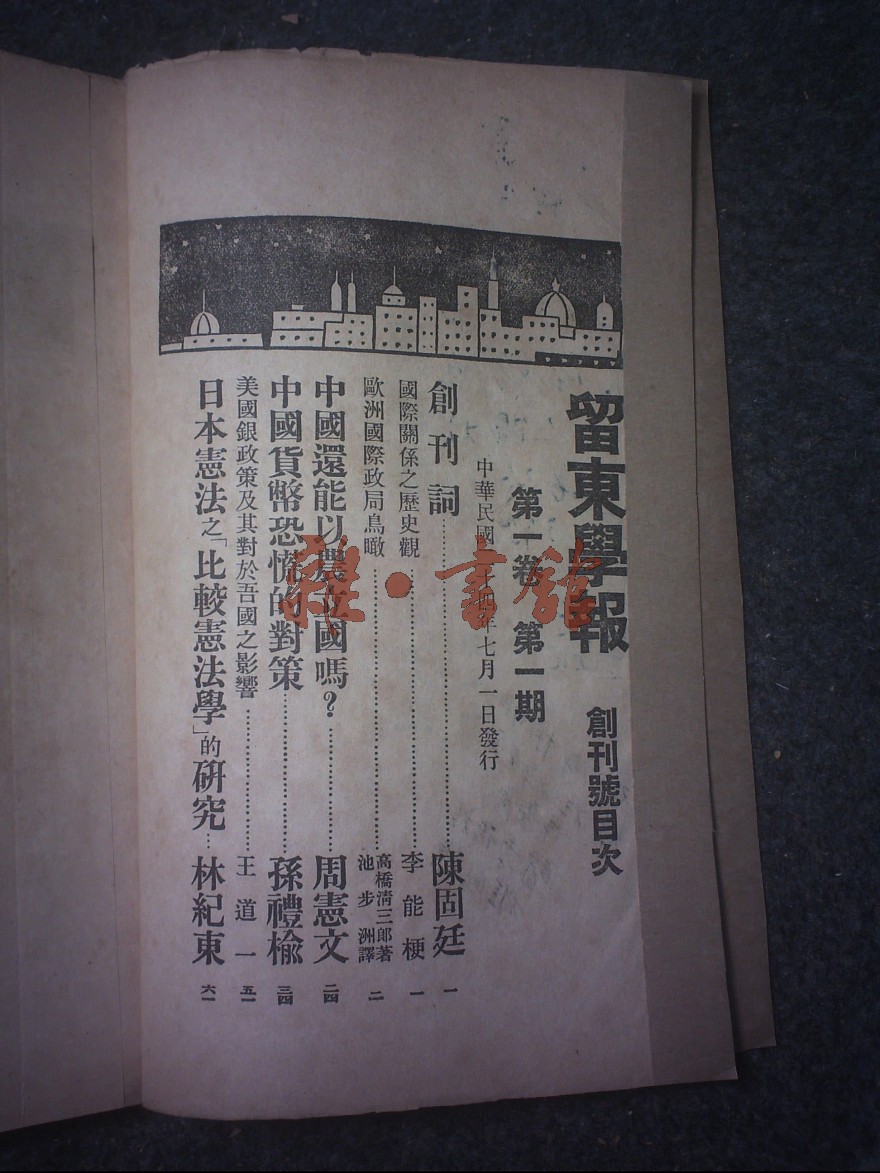 留東學報 創刊號目次
第一卷 第一期
中華民國二十四年七月一日發行
創刊詞 陳固廷 一
國際關係之歷史觀 李能梗 一
歐洲國際政局鳥瞰 高橋清三郎著 池步洲譯 二
中國還能以農立國嗎？ 周憲文 二四
中國貨幣恐慌的對策 孫禮榆 三四
美國銀政策及其對於吾國之影響 王道一 五一
日本憲法之「比較憲法學」的研究 林紀東 六一
雜·書館